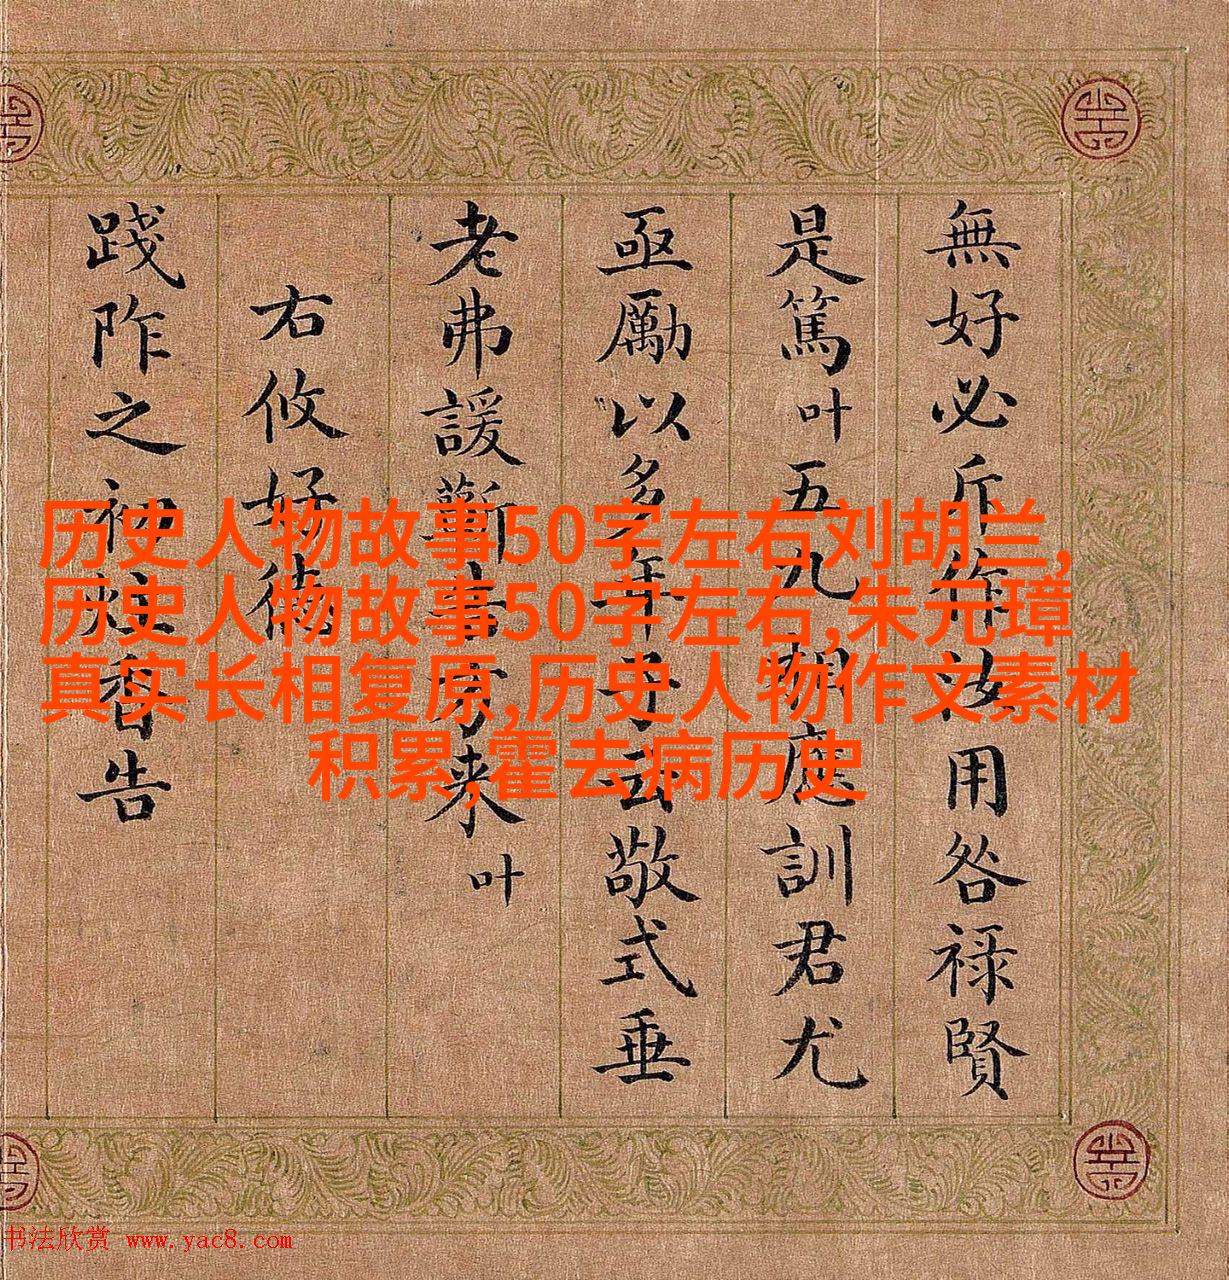 無好必斥作汝用咎祿賢
是篤叶五九朝庭訓君尤
亟勵以多年予云敬式垂
老弗諼蘄書方来叶
右攸好德
踐阼之初炷香告
历史人物故事50字左右刘胡兰,
历史人物故事50字左右,朱元璋
真实长相复原,历史人物作文素材
积累,霍去病历史
书法欣赏 www.yac8.com